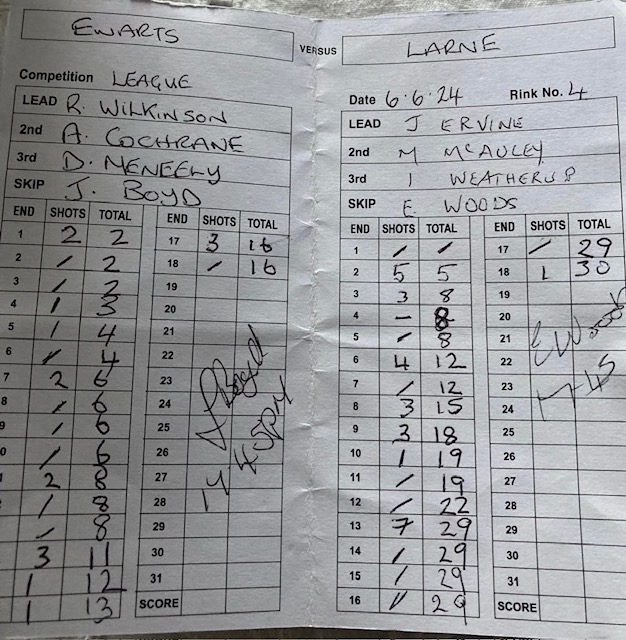 EWARTS
VERSUS
LARNE
Competition LEAGUE
LEAD R. WILKINSON
2nd A. COCHRANE
3rd D. MENEELY
SKIP J. BOYD
END SHOTS TOTAL END SHOTS TOTAL
1 2 2 17 3 16
2 / 2 18 / 16
3 / 2 19
4 1 3 20
5 1 4 21
6 / 4 22
7 2 6 23
8 / 6 24
9 / 6 25
0 / 6 26
1 2 8 27
/ 8 28
/ 8 29
3 11 30
1 12 31
1 13 SCORE
J Boyd
Date 6.6.24 Rink No. 4
LEAD J ERVINE
2nd M McAULEY
3rd I WEATHERUP
SKIP E WOODS
END SHOTS TOTAL END SHOTS TOTAL
1 / / 17 / 29
2 5 5 18 1 30
3 3 8 19
4 - 8 20
5 / 8 21
6 4 12 22
7 / 12 23
8 3 15 24
9 3 18 25
10 1 19 26
11 / 19 27
12 / 22 28
13 7 29 29
14 / 29 30
15 / 29 31
16 / 29 SCORE
E Woods
17 45